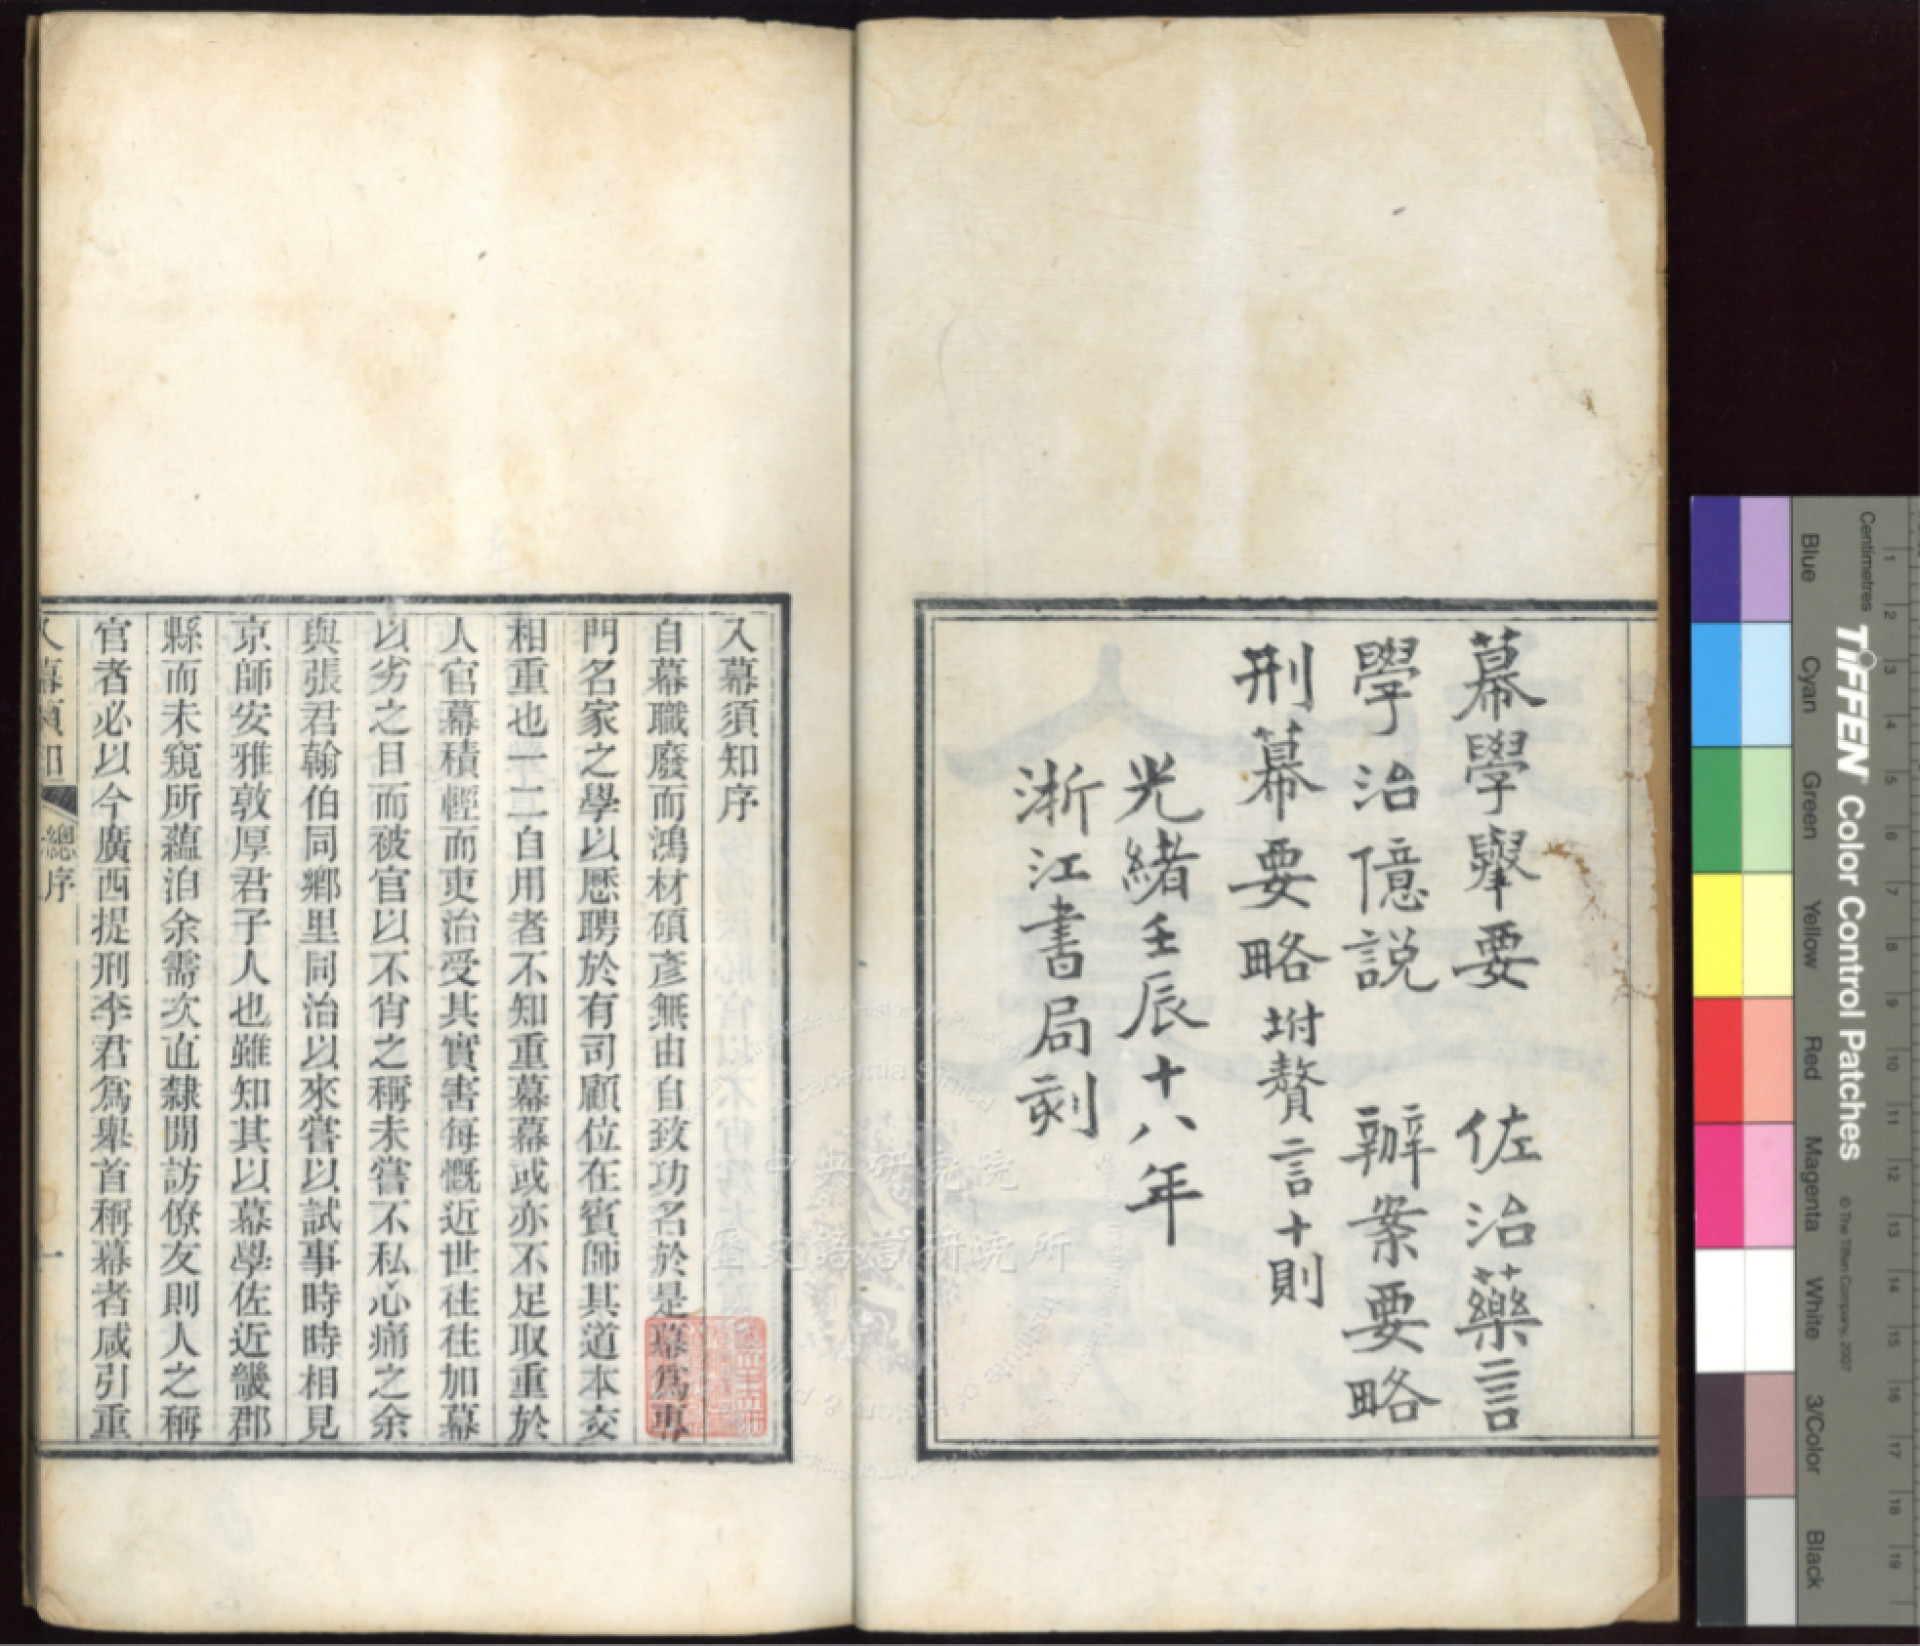 幕學舉要 佐治藥言
學治臆説 辦案要略
刑幕要略坿贅言十則
光緒壬辰十八年
浙江書局刻
入幕須知序
自幕職廢而鴻材碩彥無由自致功名於是幕爲專
門名家之學以應聘於有司顧位在賓師其道本交
相重也一二自用者不知重幕幕或亦不足取重於
人官幕積輕而吏治受其實害每慨近世往往加幕
以劣之目而被官以不肖之稱未嘗不私心痛之余
與張君翰伯同鄉里同治以來嘗以試事時時相見
京師安雅敦厚君子人也雖知其以幕學佐近畿郡
縣而未窺所蘊洎余需次直隸閒訪僚友則人之稱
官者必以今廣西提刑李君爲舉首稱幕者咸引重
入幕須知 總序 一
中央研究院
歷史語言研究所
Centimetres
1 2 3 4 5 6 7 8 9 10 11 12 13 14 15 16 17 18 19
TIFFEN Color Control Patches
© The Tiffen Company, 2007
Blue Cyan Green Yellow Red Magenta White 3/Color Black